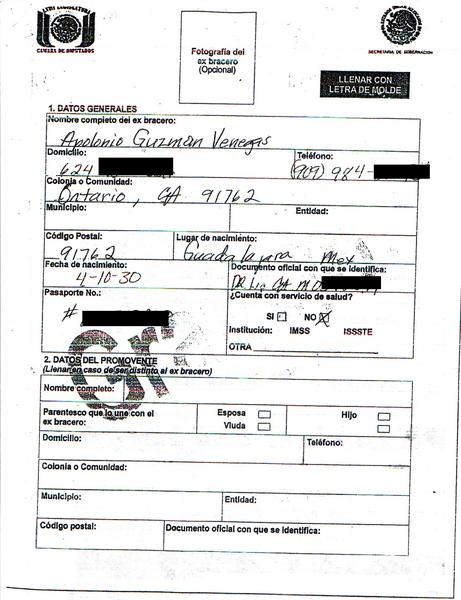 CAMARA DE DIPUTADOS
SECRETARIA DE GOBERNACION
Fotografía del
ex bracero
(Opcional)
LLENAR CON
LETRA DE MOLDE
1. DATOS GENERALES
Nombre completo del ex bracero:
Apolonio Guzman Venegas
Domicilio: Teléfono:
624 (909) 984-
Colonia o Comunidad:
Ontario, CA 91762
Municipio: Entidad:
Código Postal: Lugar de nacimiento:
91762 Guadalajara Mex
Fecha de nacimiento: Documento oficial con que se identifica:
4-10-30 DR Lic CA
Pasaporte No.: ¿Cuenta con servicio de salud?
# SI NO X
Institución: IMSS ISSSTE
OTRA
2. DATOS DEL PROMOVENTE
(Llenar en caso de ser distinto al ex bracero)
Nombre completo:
Parentesco que lo une con el Esposa Hijo
ex bracero: Viuda
Domicilio: Teléfono:
Colonia o Comunidad:
Municipio: Entidad:
Código postal: Documento oficial con que se identifica: